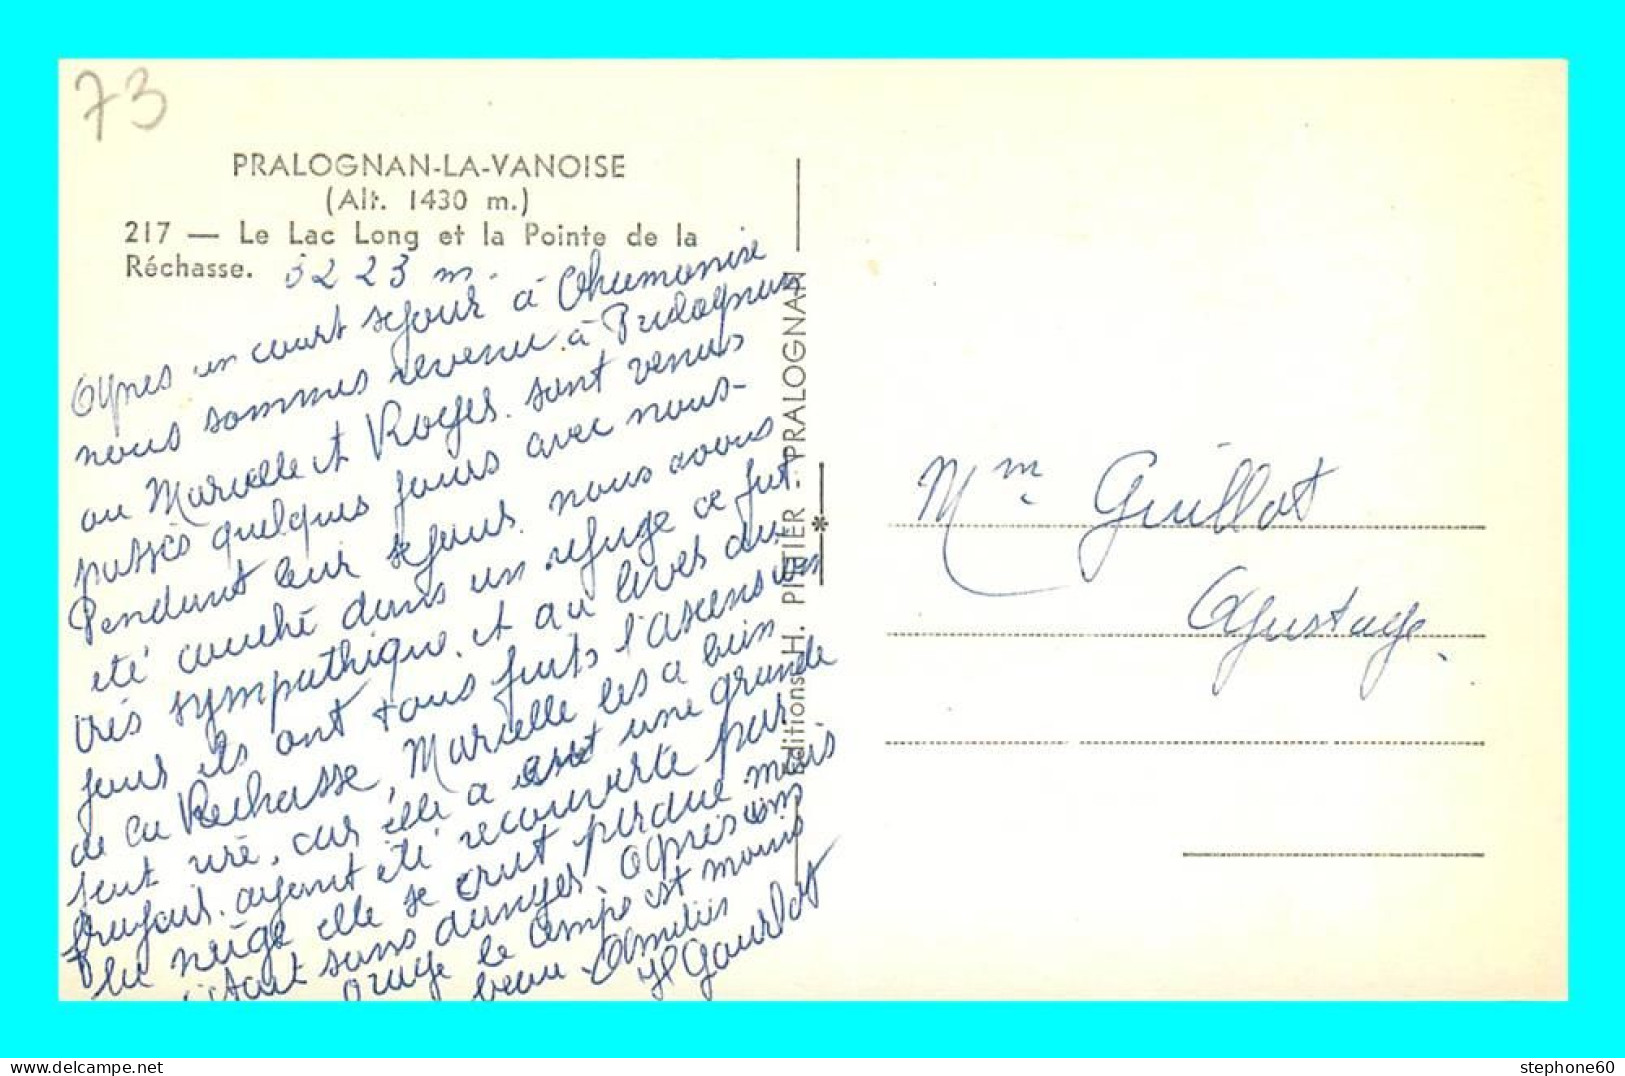 73
PRALOGNAN-LA-VANOISE
(Alt. 1430 m.)
217 — Le Lac Long et la Pointe de la
Réchasse. 3223 m.
Après un court séjour à
nous sommes revenu à Pralognan
ou Marcelle et Roger sont venus
passés quelques jours avec nous-
Pendant leur séjour nous avons
été couché dans un refuge ce fut
très sympathique. et au lever du
jour ils ont tous faits l'ascension
de la Rechasse, Marcelle les a bien
fait rire, car elle a une grande
frayeur. ayant été recouverte par
la neige elle se crut perdue mais
c'était sans danger. Après un
orage le temps est moins
beau. Amitiés
Mme Guillot
Editions H. PITIER - PRALOGNAN
stephone60